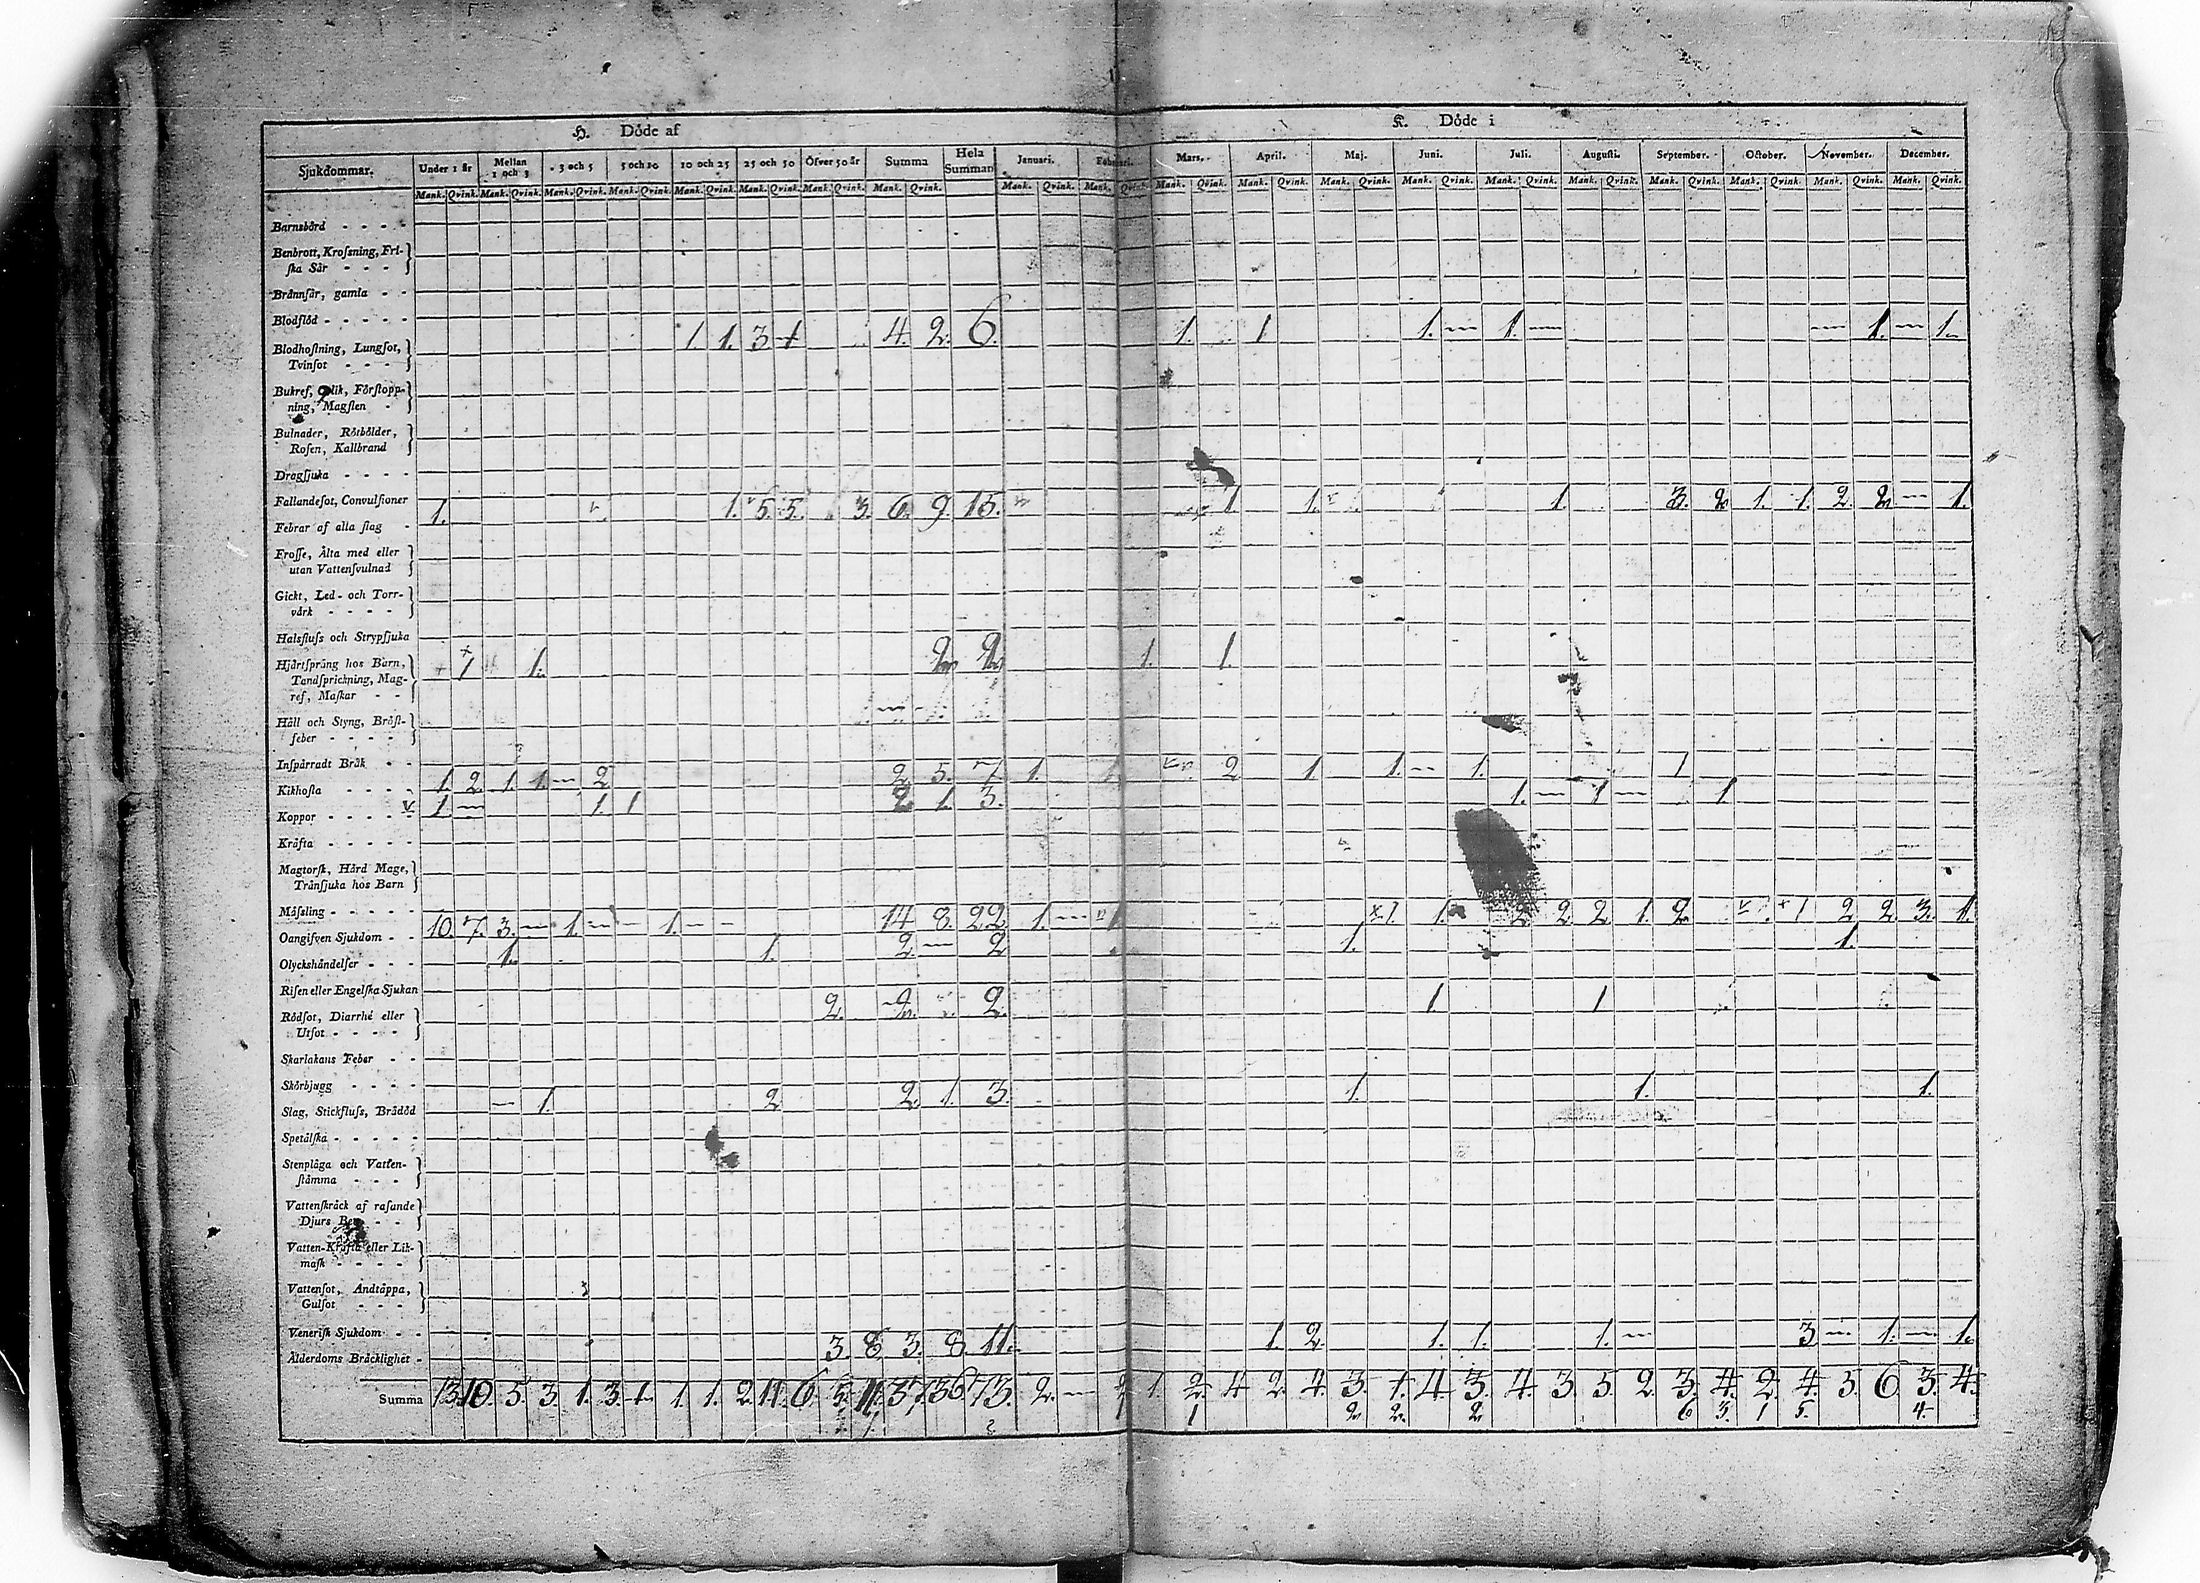 H. Döde af
K. Döde i
Sjukdommar. Under 1 år Mellan 1 och 3 - 3 och 5 5 och 10 10 och 25 25 och 50 Öfver 50 år Summa Hela Summan Januari. Februari. Mars. April. Maj. Juni. Juli. Augusti. September. October. November. December.
Mank. Qvink. Mank. Qvink. Mank. Qvink. Mank. Qvink. Mank. Qvink. Mank. Qvink. Mank. Qvink. Mank. Qvink. Mank. Qvink. Mank. Qvink. Mank. Qvink. Mank. Qvink. Mank. Qvink. Mank. Qvink. Mank. Qvink. Mank. Qvink. Mank. Qvink. Mank. Qvink. Mank. Qvink. Mank. Qvink.
Barnsbörd - - - -
Benbrott, Krosſning, Fri-
ſka Sår - - -
Brännſår, gamla - -
Blodflöd - - - - -
Blodhoſtning, Lungſot, 1. 1. 3. 4. 2. 6. 1. 1 1. — 1. — — 1. — 1.
Tvinſot - - -
Bukref, Förſtopp-
ning, Magſten -
Bulnader, Rötbölder,
Roſen, Kallbrand
Dragſjuka - - - -
Fallandeſot, Convulſioner
Febrar af alla ſlag - 1. 1. 5. 5. 3. 6. 9. 15. 1 1. 1. 3. 2 1. 1. 2. 2. — 1.
Froſſe, Älta med eller
utan Vattenſvulnad
Gickt, Led- och Torr-
värk - - - -
Halsfluſs och Strypſjuka
Hjärtſpräng hos Barn, 1 1. 2. 2. 1. 1.
Tandſprickning, Mag-
ref, Maſkar - -
Håll och Styng, Bröſt-
feber - - - -
Inſpärradt Bråk - -
Kikhoſta - - - - 1. 2. 1. 1. — 2. 2. 5. 7. 1. 1. 2. 1. 1. — 1. 1
Koppor - - - - 1. — 1. 1 2. 1. 3. 1. — 1 — 1.
Kräfta - - - - -
Magtorſk, Hård Mage,
Tränſjuka hos Barn
Måſsling - - - - -
Oangifven Sjukdom - - 10. 7. 3. — 1. — — 1. — — 14 8. 22 1. — 1 1. 1. 2 2 2 1. 2 1 2 2. 3. 1.
Olyckshändelſer - - - 1. 1. 2. — 2 1. 1.
Riſen eller Engelſka Sjukan
Rödſot, Diarrhé eller 2. 2. 2. 1. 1
Utſot - - - -
Skarlakans Feber - -
Skörbjugg - - - -
Slag, Stickfluſs, Brådöd — 1. 2. 2. 1. 3. 1. 1. 1.
Spetälſka - - - - -
Stenplåga och Vatten-
ſtämma - - -
Vattenſkräck af raſande
Djurs - -
Vatten-Kräfta eller Lik-
maſk - - - -
Vattenſot, Andtäppa,
Gulſot - - -
Veneriſk Sjukdom - -
Ålderdoms Bräcklighet - 3. 8. 3. 8. 11. 1. 2 1. 1. 1. — 3 — 1. — 1.
Summa 13. 10. 5. 3. 1. 3. 1. 1. 1. 2. 11. 6. 5. 11. 37. 36. 73. 2. — 2 1. 2 4 2. 4. 3. 1. 4. 3. 4. 3. 5. 2. 3. 4. 2. 4. 5. 6. 3. 4.
1 1 2 2. 2 6 3. 1 5. 4.